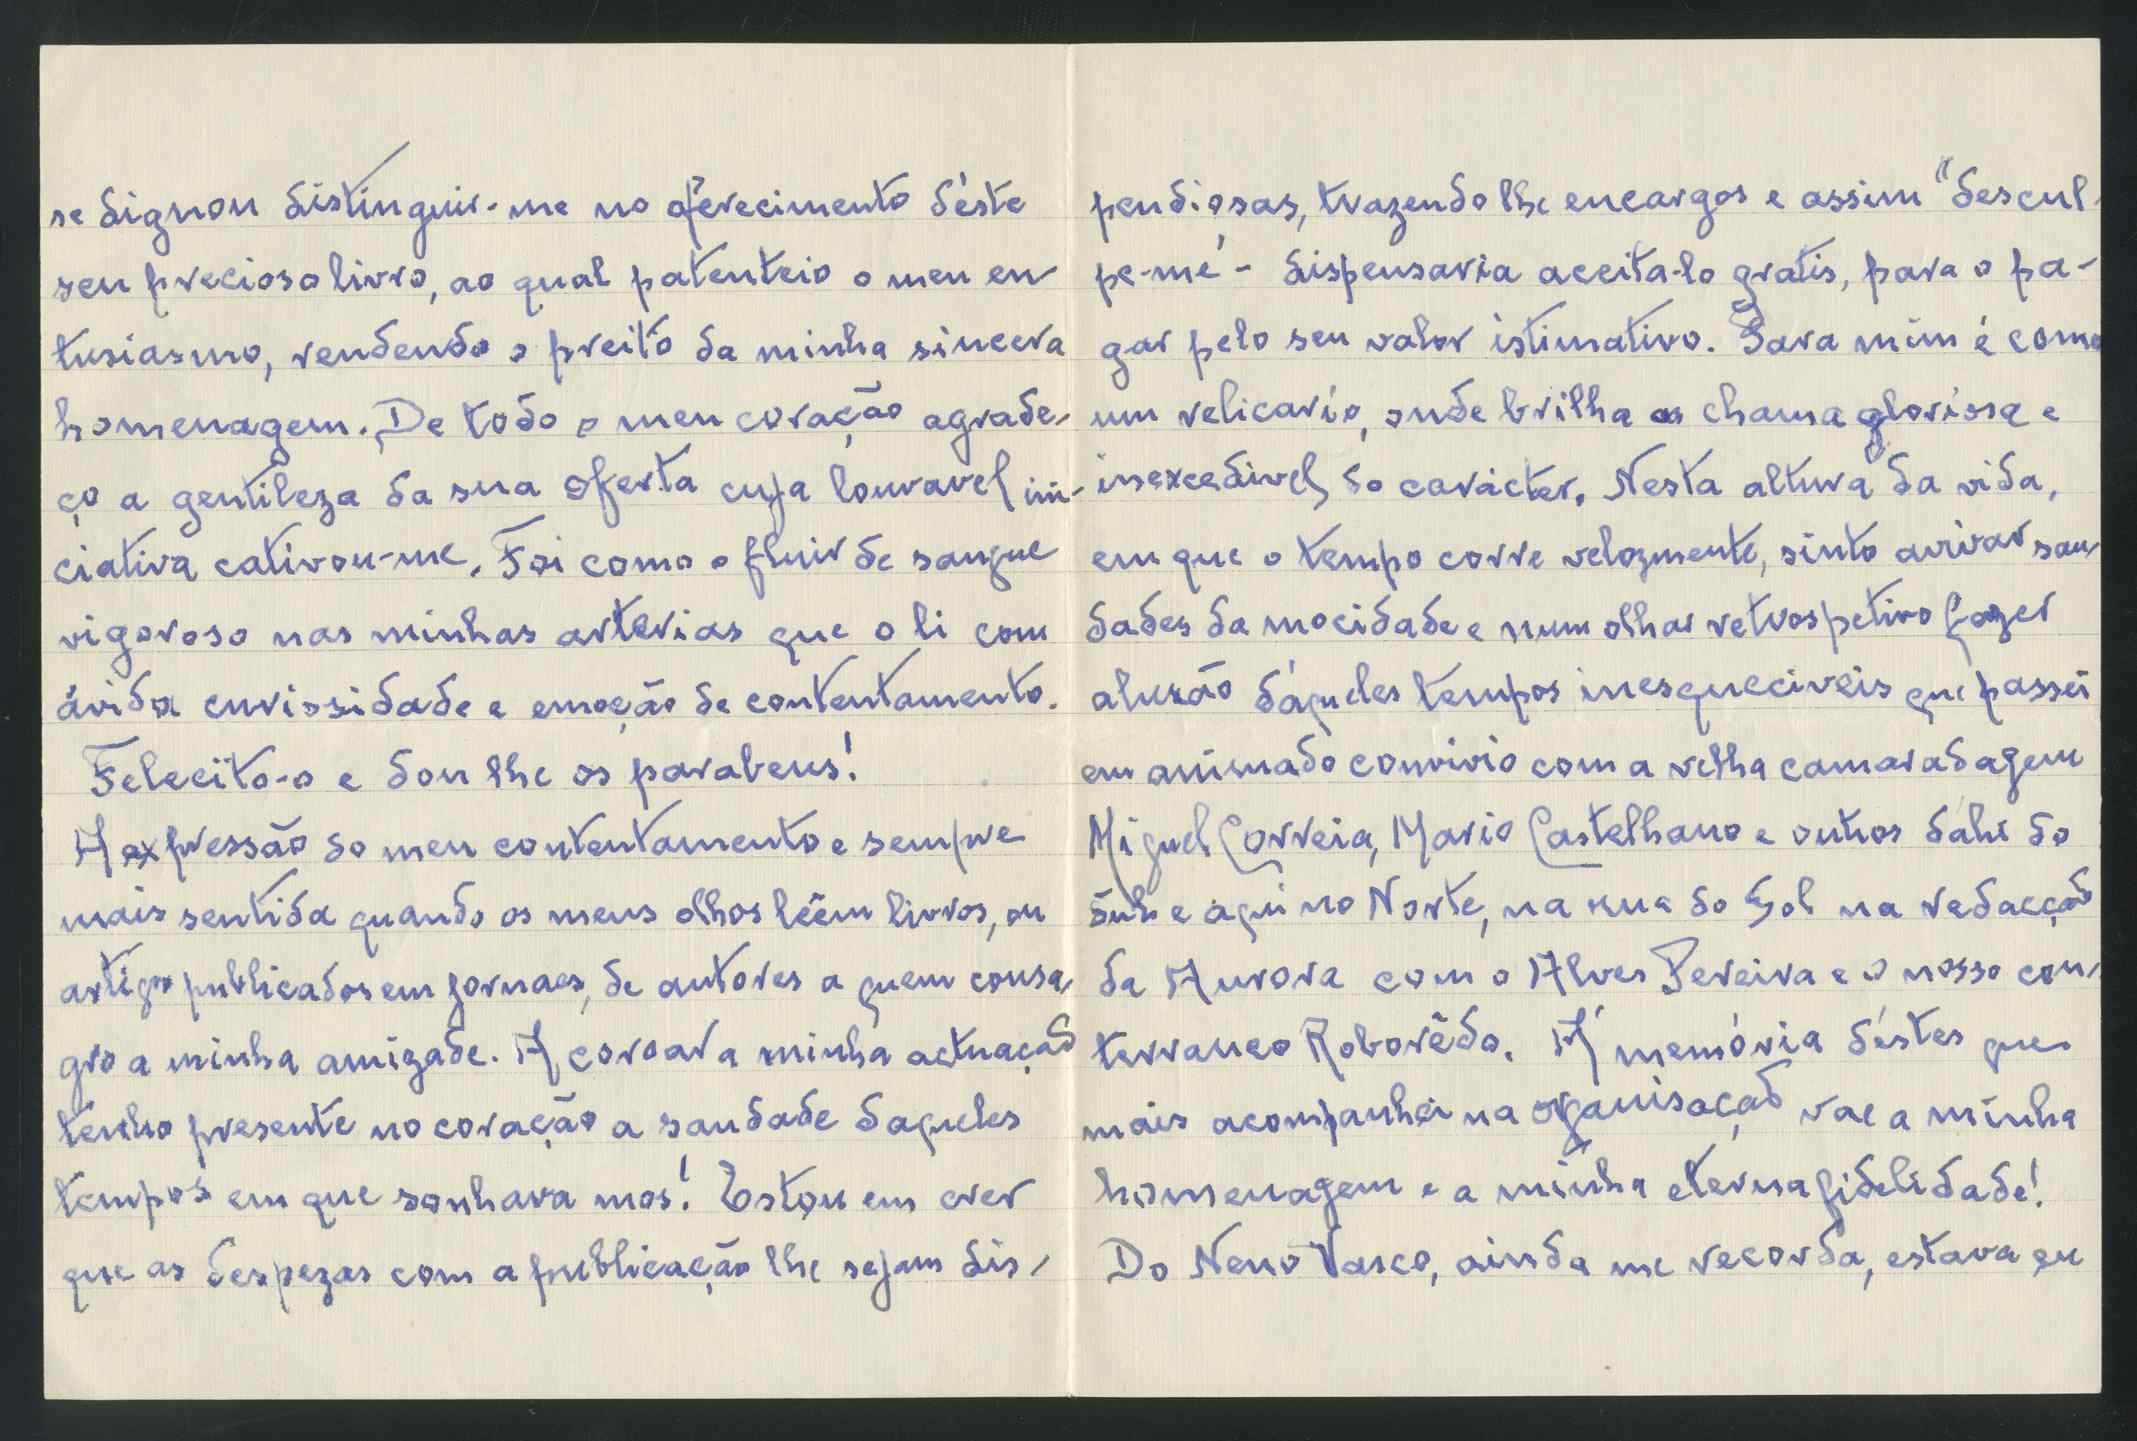 se dignou distinguir-me no oferecimento déste
seu precioso livro, ao qual patenteio o meu en-
tusiasmo, rendendo o preito da minha sincera
homenagem. De todo o meu coração agrade-
ço a gentileza da sua oferta cuja louvavel ini-
ciativa cativou-me. Foi como o fluir de sangue
vigoroso nas minhas arterias que o li com
ávida curiosidade e emoção de contentamento.
Felecito-o e dou lhe os parabens!
A expressão do meu contentamento e sempre
mais sentida quando os meus olhos lêem livros, ou
artigos publicados em jornaes, de autores a quem consa-
gro a minha amizade. A coroar a minha actuação
tenho presente no coração a saudade daqueles
tempos em que sonhava mos! Estou em crer
que as despezas com a publicação lhe sejam dis-
pendiosas, trazendo lhe encargos e assim "descul-
pe-me" - dispensaria aceita-lo gratis, para o pa-
gar pelo seu valor istimativo. Para mim é como
um relicario, onde brilha a chama gloriosa e
inexcedivel do carácter. Nesta altura da vida,
em que o tempo corre velozmente, sinto avivar sau-
dades da mocidade e num olhar retrospetivo fazer
alusão dáqueles tempos inesqueciveis que passei
em animado convivio com a velha camaradagem
Miguel Correia, Mario Castelhano e outros dáhi do
Sul e aqui no Norte, na rua do Sol na redacção
da Aurora com o Alves Pereira e o nosso con-
terraneo Roborêdo. Á memória déstes que
mais acompanhei na organisação vae a minha
homenagem e a minha eterna fidelidade!
Do Neno Vasco, ainda me recorda, estava eu